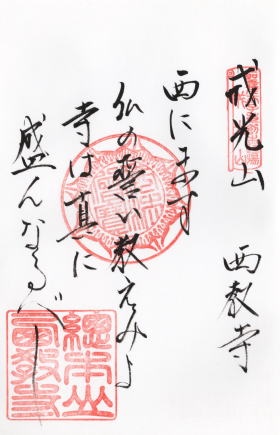 戒光山
西教寺
西にます
仏の誓い教えみよ
寺は真に
盛んなるべし
總本山
西教寺